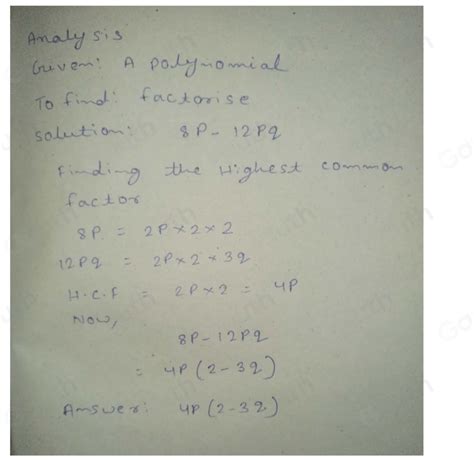 Analysis
Given: A polynomial
To find: factorise
solution: 8P - 12Pq
Finding the Highest common
factor
8P = 2P × 2 × 2
12Pq = 2P × 2 × 3q
H.C.F = 2P × 2 = 4P
Now,
8P - 12Pq
= 4P (2 - 3q)
Answer: 4P (2 - 3q)